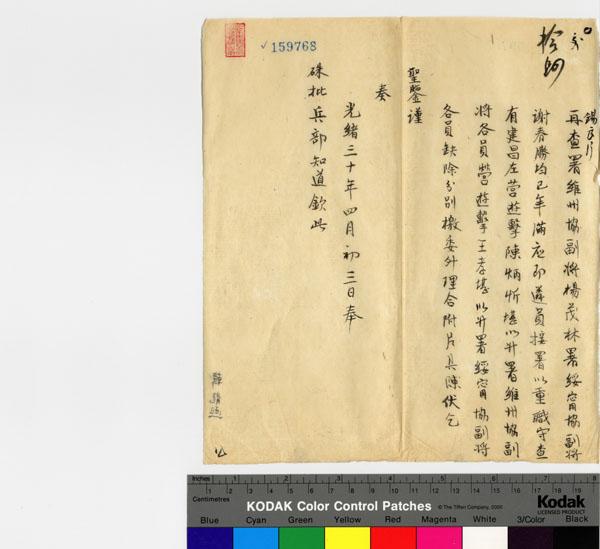 錫良片
再查署維州協副將楊茂林署綏甯協副將
謝春勝均已年滿應即遴員接署以重職守查
有建昌左營遊擊陳炳忻堪以升署維州協副
將各員營遊擊王孝堪以升署綏甯協副將
各員缺除分別檄委外理合附片具陳伏乞
聖鑒謹
奏
光緒三十年四月初三日奉
硃批兵部知道欽此
√159768
Inches 1 2 3 4 5 6 7 8
Centimetres 1 2 3 4 5 6 7 8 9 10 11 12 13 14 15 16 17 18 19
KODAK Color Control Patches © The Tiffen Company, 2000
Kodak
LICENSED PRODUCT
Blue Cyan Green Yellow Red Magenta White 3/Color Black